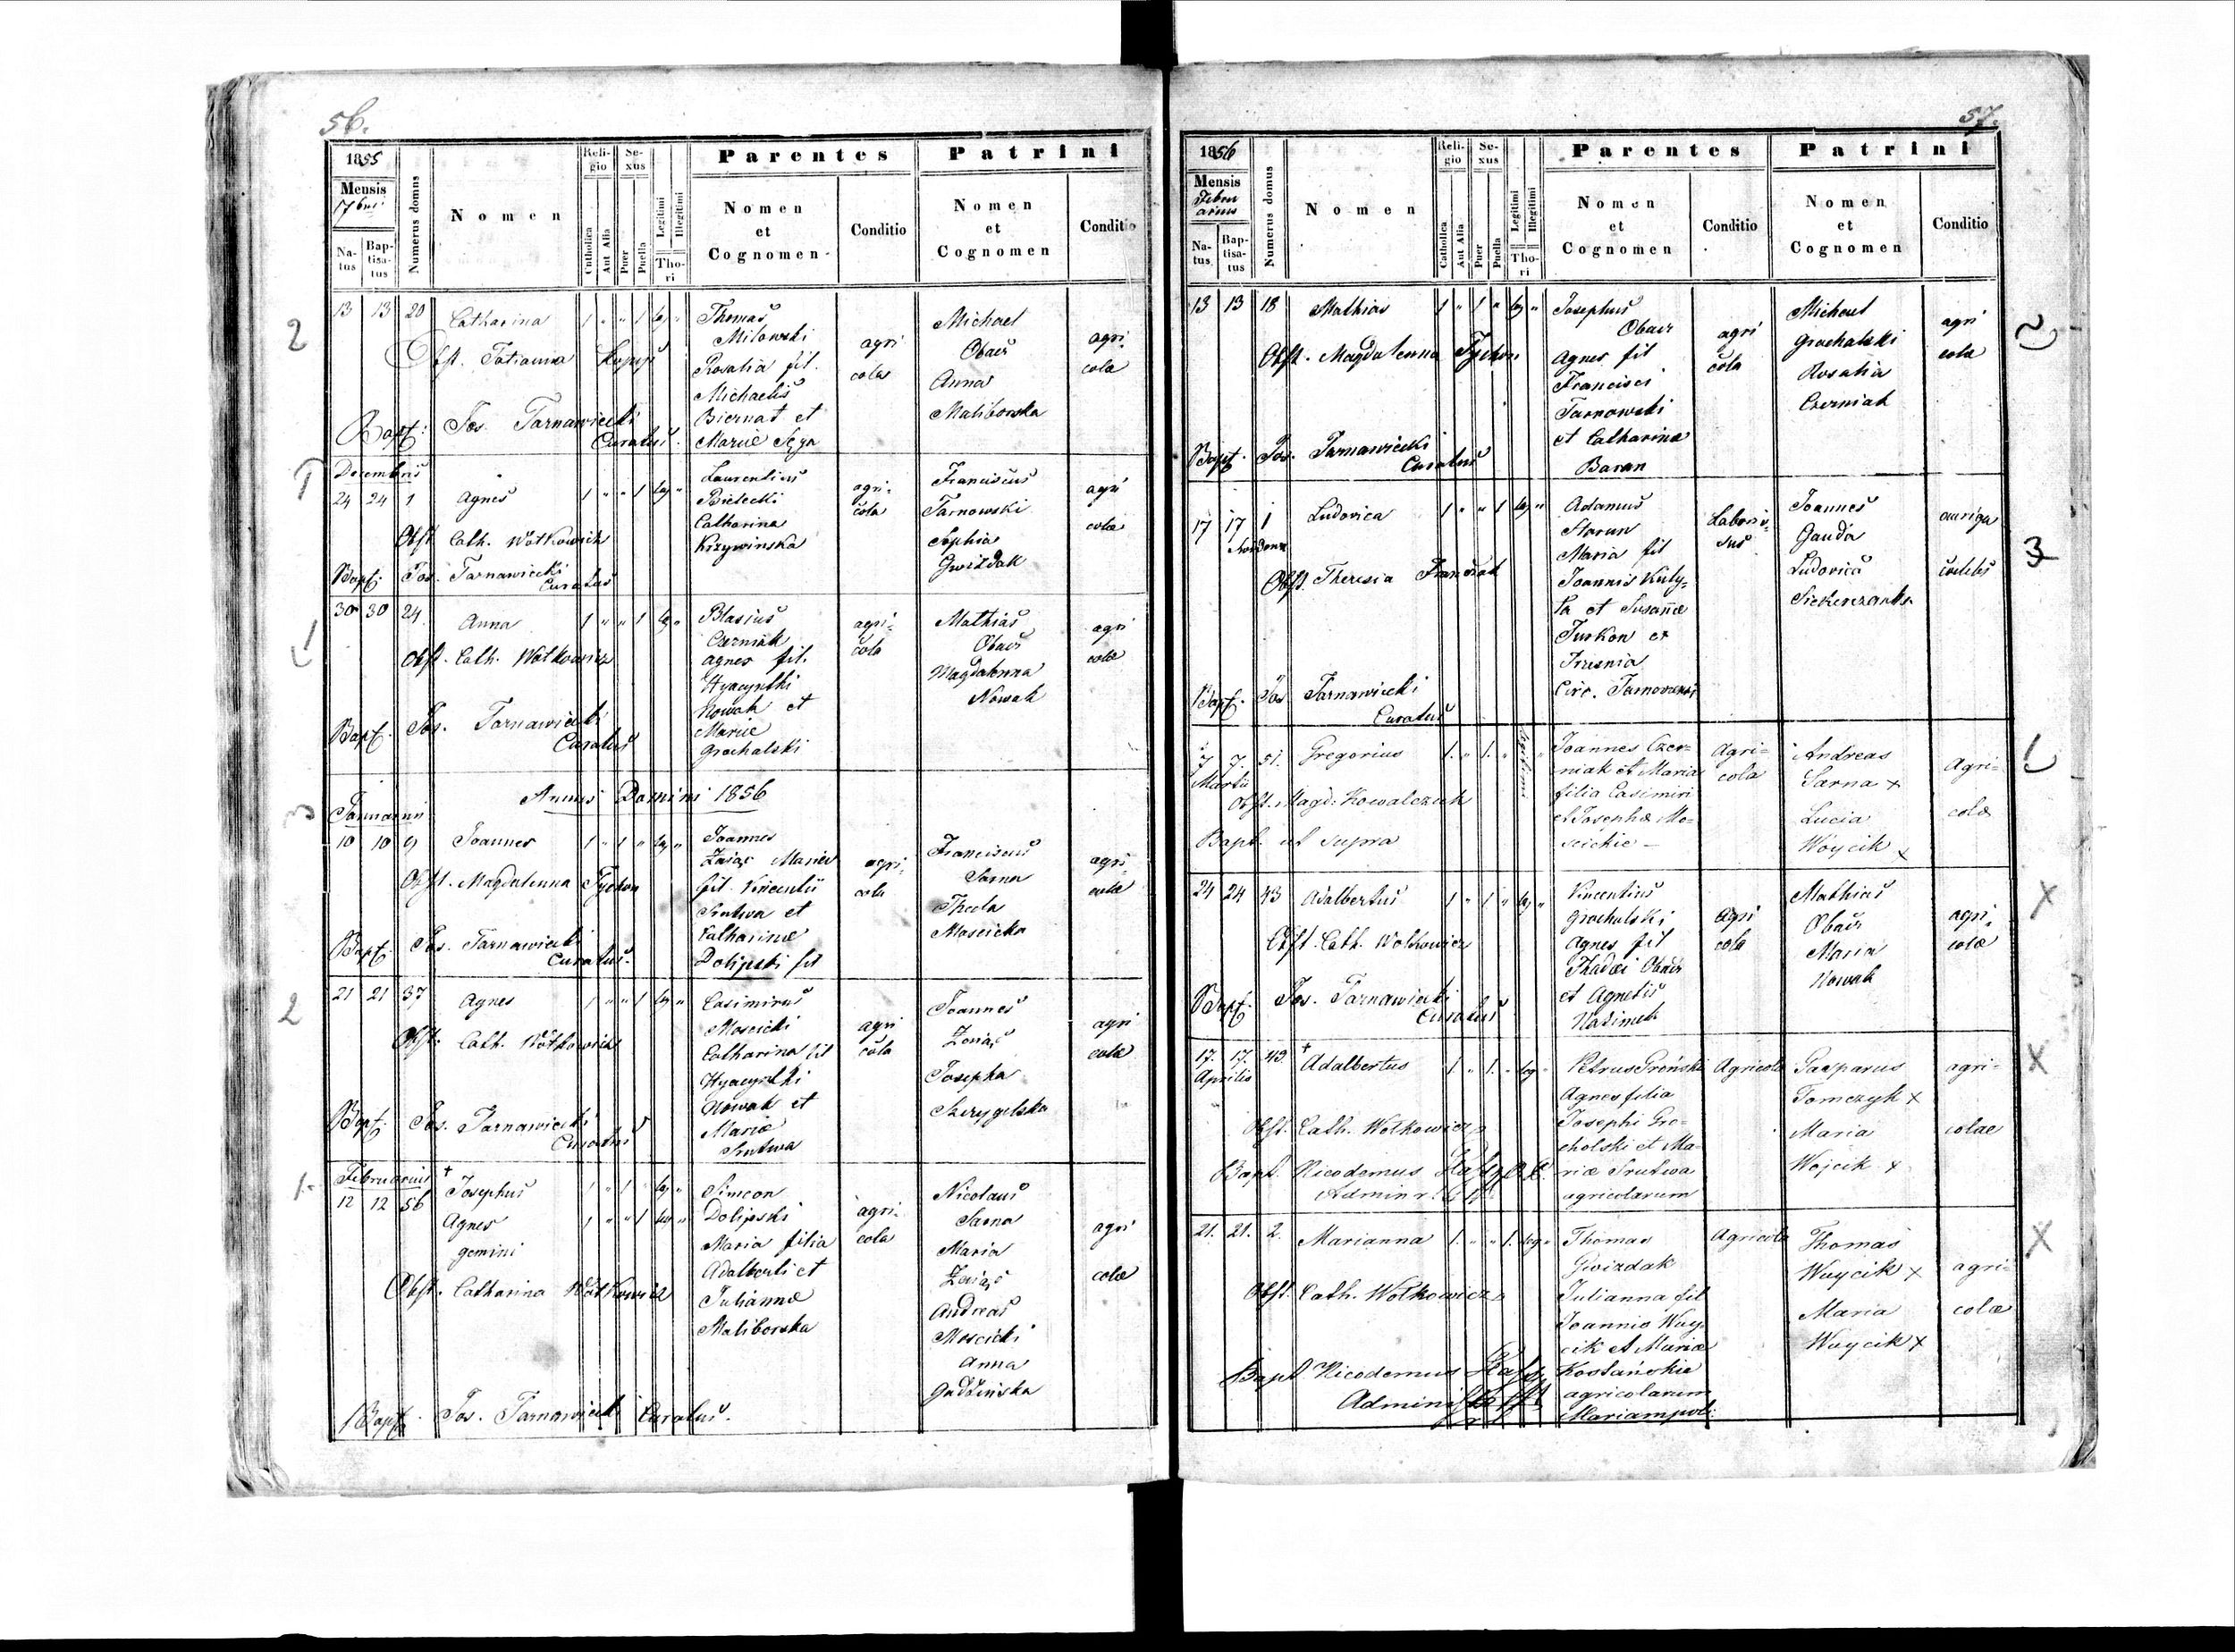 56.
1855
Mensis
17bris
Na-
tus
Bap-
tisa-
tus
Numerus domus
Nomen
Reli-
gio
Catholica
Aut Alia
Se-
xus
Puer
Puella
Legitimi
Illegitimi
Tho-
ri
Parentes
Nomen
et
Cognomen
Conditio
Patrini
Nomen
et
Cognomen
Conditio
2
13 13 20 Catharina 1 " " 1 leg "
Obst. Tatianna
Bapt. Jos. Tarnawiecki
Curatus
Thomas
Milowski
Rosalia fil.
Michaelis
Biernat et
Mariæ
agri
cola
Michael
Obacz
Anna
Maliborska
agri
colæ
Decembris
24 24 1 Agnes 1 " " 1 leg "
Obst Cath. Wołkowicz
Bapt. Jos. Tarnawiecki
Curatus
Laurentius
Bielecki
Catharina
Krzywinska
agri-
cola
Franciscus
Tarnowski
Sophia
Gwizdak
agri
colæ
30 30 24 Anna 1 " " 1 leg "
Obst. Cath. Wołkowicz
Bapt. Jos. Tarnawiecki
Curatus
Blasius
Czerniak
Agnes fil.
Hyacynthi
Nowak et
Mariæ
Grochalski
agri-
cola
Mathias
Obacz
Magdalenna
Nowak
agri
colæ
Annus Domini 1856
3
Januarii
10 10 9 Joannes 1 " 1 " leg "
Obst. Magdalenna Tychon
Bapt. Jos. Tarnawiecki
Curatus
Joannes
Zaiąc Maria
fil. Vincentii
Srutwa et
Catharinæ
Dolipski fil
agri-
cola
Franciscus
Sarna
Thecla
Moscicka
agri-
colæ
2
21 21 37 Agnes 1 " " 1 leg "
Obst. Cath. Wołkowicz
Bapt. Jos. Tarnawiecki
Curatus
Casimirus
Moscicki
Catharina fil
Hyacynthi
Nowak et
Mariæ
Srutwa
agri
cola
Joannes
Zaiąc
Josepha
Szczygelska
agri
colæ
1.
Februarius
12 12 56 † Josephus 1 " 1 " leg "
Agnes 1 " " 1 leg "
gemini
Obst. Catharina Wołkowicz
Bapt. Jos. Tarnawiecki Curatus.
Simeon
Dolipski
Maria filia
Adalberti et
Juliannæ
Maliborska
agri-
cola
Nicolaus
Sarna
Maria
Zaiąc
Andreas
Moscicki
Anna
Gudzinska
agri
colæ
57.
1856
Mensis
Febru
arius
Na-
tus
Bap-
tisa-
tus
Numerus domus
Nomen
Reli-
gio
Catholica
Aut Alia
Se-
xus
Puer
Puella
Legitimi
Illegitimi
Tho-
ri
Parentes
Nomen
et
Cognomen
Conditio
Patrini
Nomen
et
Cognomen
Conditio
13 13 18 Mathias 1 " 1 " leg "
Obst. Magdalenna Tychon
Bapt. Jos. Tarnawiecki
Curatus
Josephus
Obacz
Agnes fil
Francisci
Tarnowski
et Catharinæ
Baran
agri
cola
Michael
Grochalski
Rosalia
Czerniak
agri
colæ
2
17 17 1 Ludovica 1 " " 1 leg "
Obst. Theresia
Bapt. Jos Tarnawiecki
Curatus
Adamus
Maria fil
Joannis
et Susannæ
et
Circ. Tarnoviensi
Laborio-
sus
Joannes
Gauda
Ludovica
auriga
cælebs
3
7 7. 51. Gregorius 1. " 1. " "
Martii
Obst. Magd. Kowalczuk
Bapt. ut supra
Joannes Czer-
niak et Maria
filia Casimiri
et Josephæ Mo-
scickie
Agri-
cola
Andreas
Sarna x
Lucia
Woycik x
Agri-
colæ
24 24 43 Adalbertus 1 " 1 " leg "
Obst. Cath. Wolkowicz
Bapt. Jos. Tarnawiecki
Curatus
Vincentius
Grochalski
Agnes fil
Thadæi Obacz
et Agnetis
Nazimek
Agri
cola
Mathias
Obacz
Maria
Nowak
agri-
colæ
X
17. 17. 49. † Adalbertus 1. " 1. " leg "
Aprilis
Obst. Cath. Wołkowicz
Bapt. Nicodemus
Petrus Proński
Agnes filia
Josephi Gro-
cholski et Ma-
riæ Srutwa
agricolarum
Agricola
Gasparus
Tomczyk x
Maria
Wojcik x
agri-
colae
X
21. 21. 2. Marianna 1. " " 1. leg "
Obst. Cath. Wołkowicz
Bapt Nicodemus
Thomas
Gwizdak
Julianna fil
Joannis Woy
cik et Mariæ
Kostańskie
agricolarum
Mariampoli
Agricola
Thomas
Woycik x
Maria
Woycik x
agri-
colæ
X